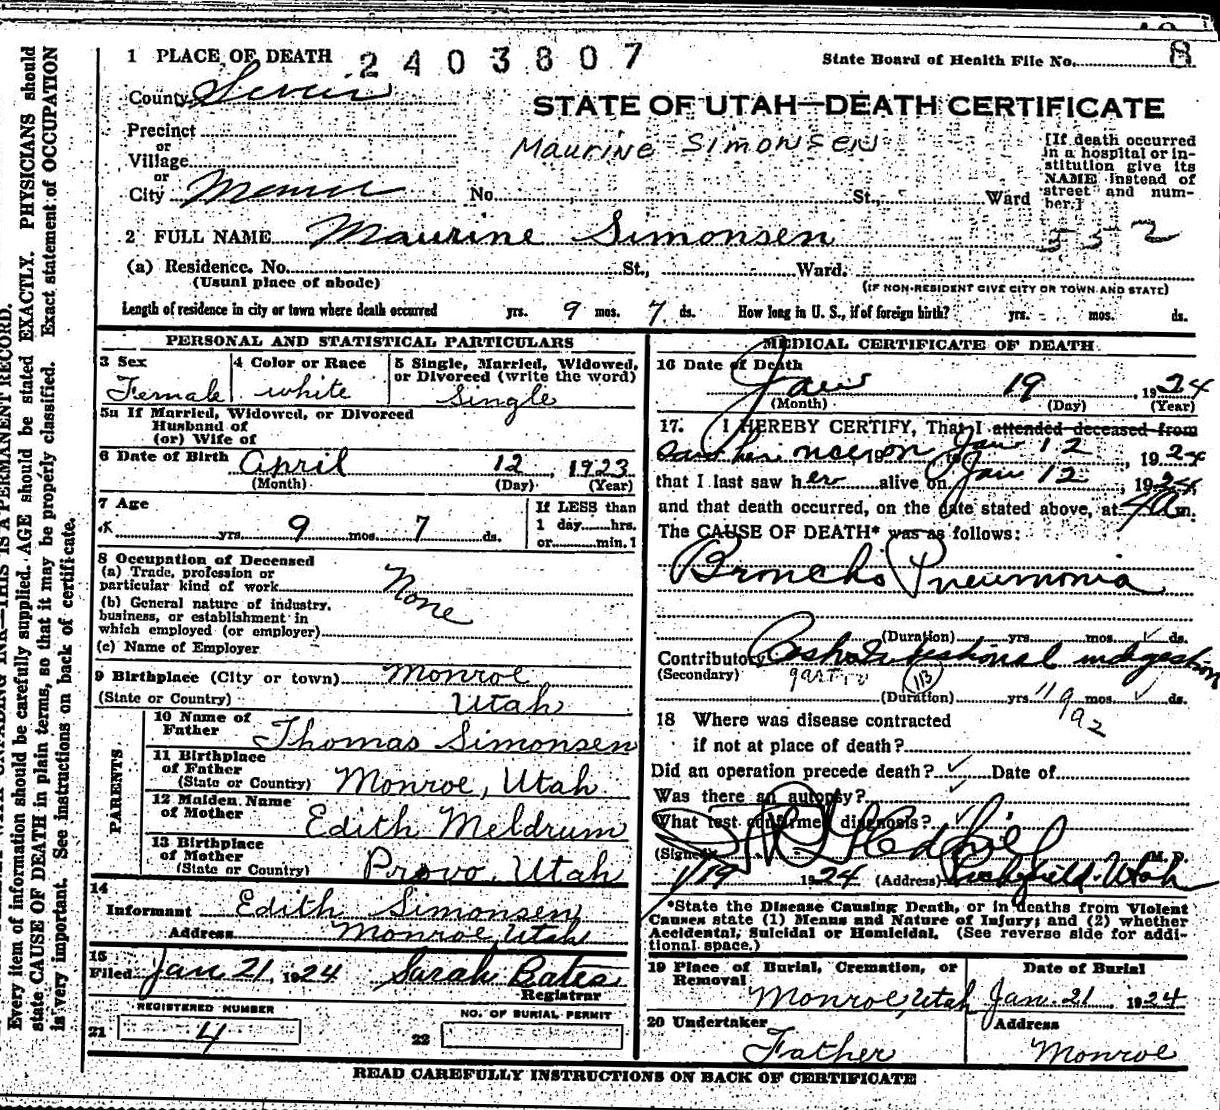 8
1 PLACE OF DEATH 2403807 State Board of Health File No. 8
County Sevier
STATE OF UTAH—DEATH CERTIFICATE
Precinct
Maurine Simonsen
or
Village
or
City Monroe No. St., Ward
[If death occurred in a hospital or institution give its NAME instead of street and number.]
2 FULL NAME Maurine Simonsen
532
(a) Residence. No. St., Ward.
(Usual place of abode) (IF NON-RESIDENT GIVE CITY OR TOWN AND STATE)
Length of residence in city or town where death occurred yrs. 9 mos. 7 ds. How long in U. S., if of foreign birth? yrs. mos. ds.
PERSONAL AND STATISTICAL PARTICULARS
3 Sex
Female
4 Color or Race
white
5 Single, Married, Widowed, or Divorced (write the word)
Single
5a If Married, Widowed, or Divorced
Husband of
(or) Wife of
6 Date of Birth April 12, 1923
(Month) (Day) (Year)
7 Age
yrs. 9 mos. 7 ds.
If LESS than
1 day......hrs.
or......min.
8 Occupation of Deceased
(a) Trade, profession or
particular kind of work None
(b) General nature of industry,
business, or establishment in
which employed (or employer)
(c) Name of Employer
9 Birthplace (City or town) Monroe
(State or Country) Utah
PARENTS
10 Name of Father Thomas Simonsen
11 Birthplace of Father
(State or Country) Monroe, Utah
12 Maiden Name of Mother Edith Meldrum
13 Birthplace of Mother
(State or Country) Provo, Utah
14
Informant Edith Simonsen
Address Monroe, Utah
15
Filed Jan 21, 1924 Sarah Bates
Registrar
REGISTERED NUMBER
21 4
NO. OF BURIAL PERMIT
22
MEDICAL CERTIFICATE OF DEATH
16 Date of Death
Jan 19, 1924
(Month) (Day) (Year)
17. I HEREBY CERTIFY, That I attended deceased from
saw her once on Jan 12, 1924
that I last saw her alive on Jan 12, 1924
and that death occurred, on the date stated above, at m.
The CAUSE OF DEATH* was as follows:
Broncho Pneumonia
(Duration) yrs. mos. ds.
Contributory indigestion
(Secondary) gastro 113
(Duration) yrs. mos. ds.
18 Where was disease contracted
if not at place of death?
Did an operation precede death? Date of
Was there an autopsy?
What test confirmed diagnosis?
(Signed) M. D.
1/19 1924 (Address) Richfield, Utah
*State the Disease Causing Death, or in deaths from Violent
Causes state (1) Means and Nature of Injury; and (2) whether
Accidental, Suicidal or Homicidal. (See reverse side for addi-
tional space.)
19 Place of Burial, Cremation, or Removal
Monroe, Utah
Date of Burial
Jan. 21 1924
20 Undertaker
Father
Address
Monroe
READ CAREFULLY INSTRUCTIONS ON BACK OF CERTIFICATE
THIS IS A PERMANENT RECORD.
Every item of information should be carefully supplied. AGE should be stated EXACTLY. PHYSICIANS should
state CAUSE OF DEATH in plain terms, so that it may be properly classified. Exact statement of OCCUPATION
is very important. See instructions on back of certificate.